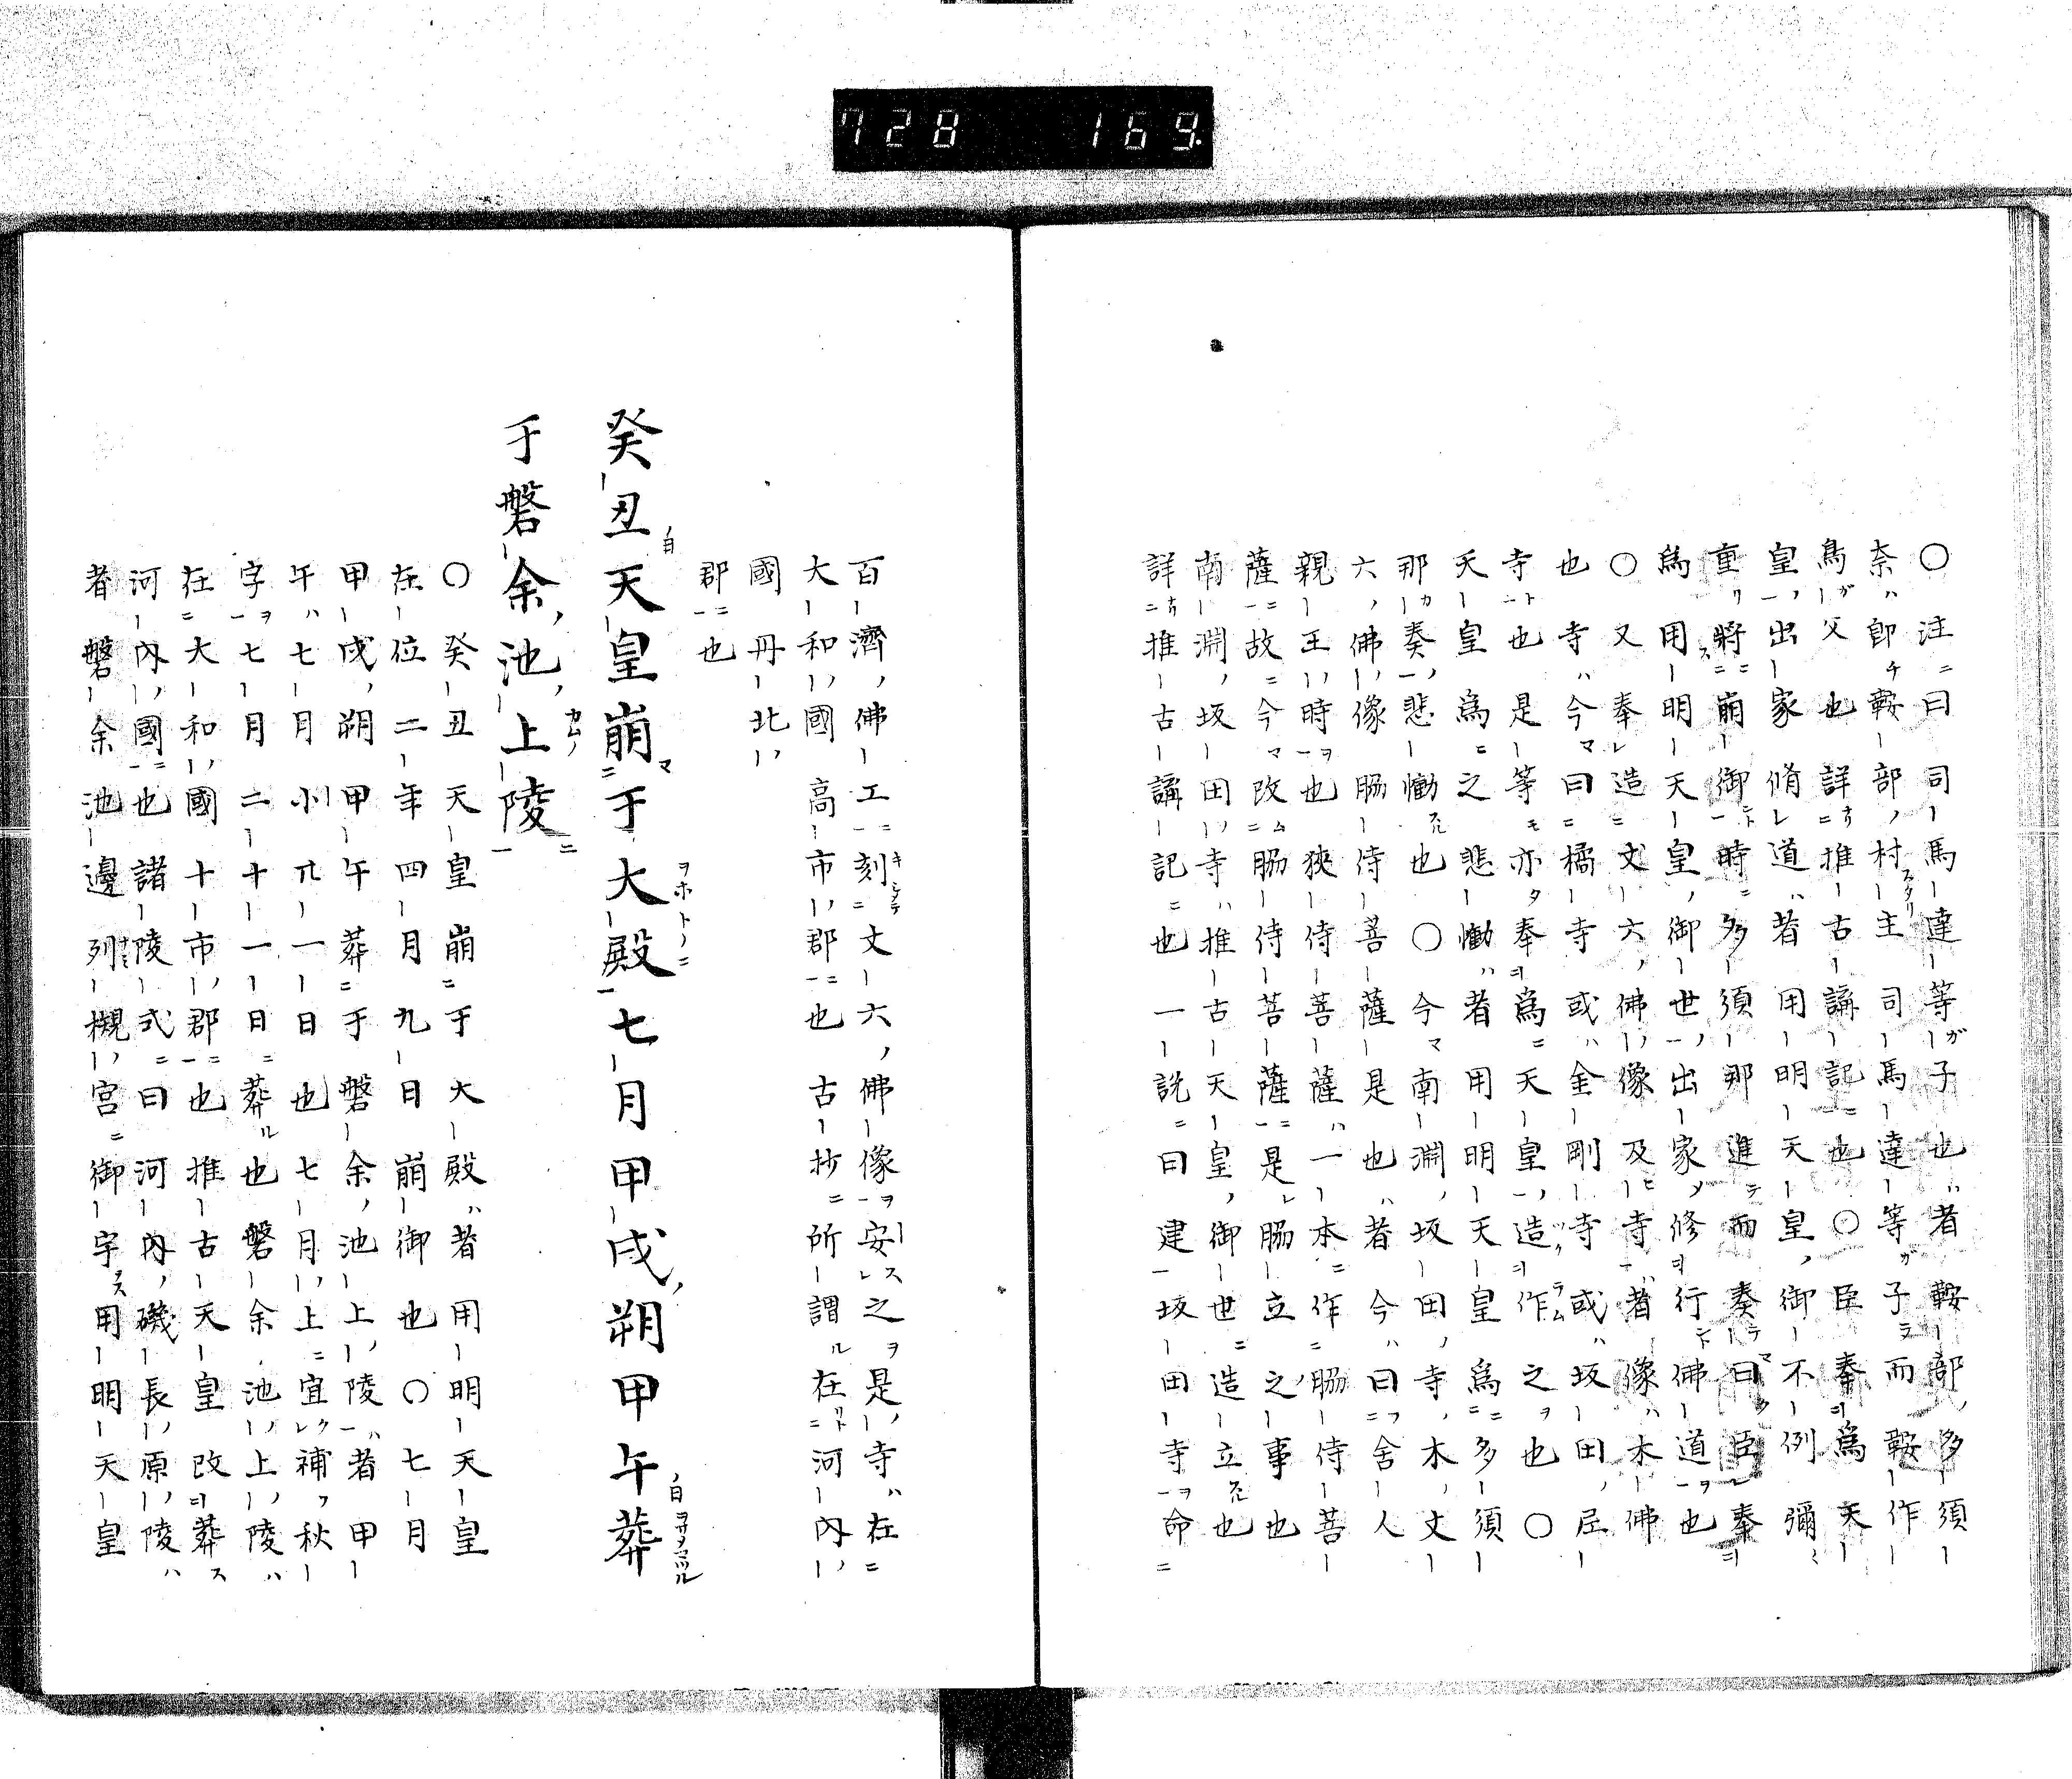 728 169.
〇注曰司馬達等子也者鞍部多須
奈即鞍部村主司馬達等子而鞍作
鳥父也詳推古講記也〇臣奉為天
皇出家脩道者用明天皇御不例彌
重將崩御時多須那進而奏曰臣奉
為用明天皇御世出家修行佛道也
〇又奉造丈六佛像及寺者像木佛
也寺今曰橘寺或金剛寺或坂田尼
寺也是等亦奉為天皇造作之也〇
天皇為之悲慟者用明天皇為多須
那奏悲慟也〇今南淵坂田寺木丈
六佛像脇侍菩薩是也者今曰舍人
親王時也狹侍菩薩一本作脇侍菩
薩故今改脇侍菩薩是脇立之事也
南淵坂田寺推古天皇御世造立也
詳推古講記也一説曰建坂田寺命
百濟佛工刻丈六佛像安之是寺在
大和國高市郡也古抄所謂在河內
國丹北
郡也
癸丑天皇崩于大殿七月甲戌朔甲午葬
于磐余池上陵
〇癸丑天皇崩于大殿者用明天皇
在位二年四月九日崩御也〇七月
甲戌朔甲午葬于磐余池上陵者甲
午七月小廿一日也七月上宜補秋
字七月二十一日葬也磐余池上陵
在大和國十市郡也推古天皇改葬
河內國也諸陵式曰河內磯長原陵
者磐余池邊列槻宮御宇用明天皇